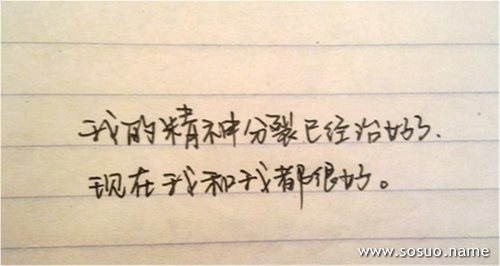 我的精神分裂已经治好了.
现在我和我都很好。
www.sosuo.name